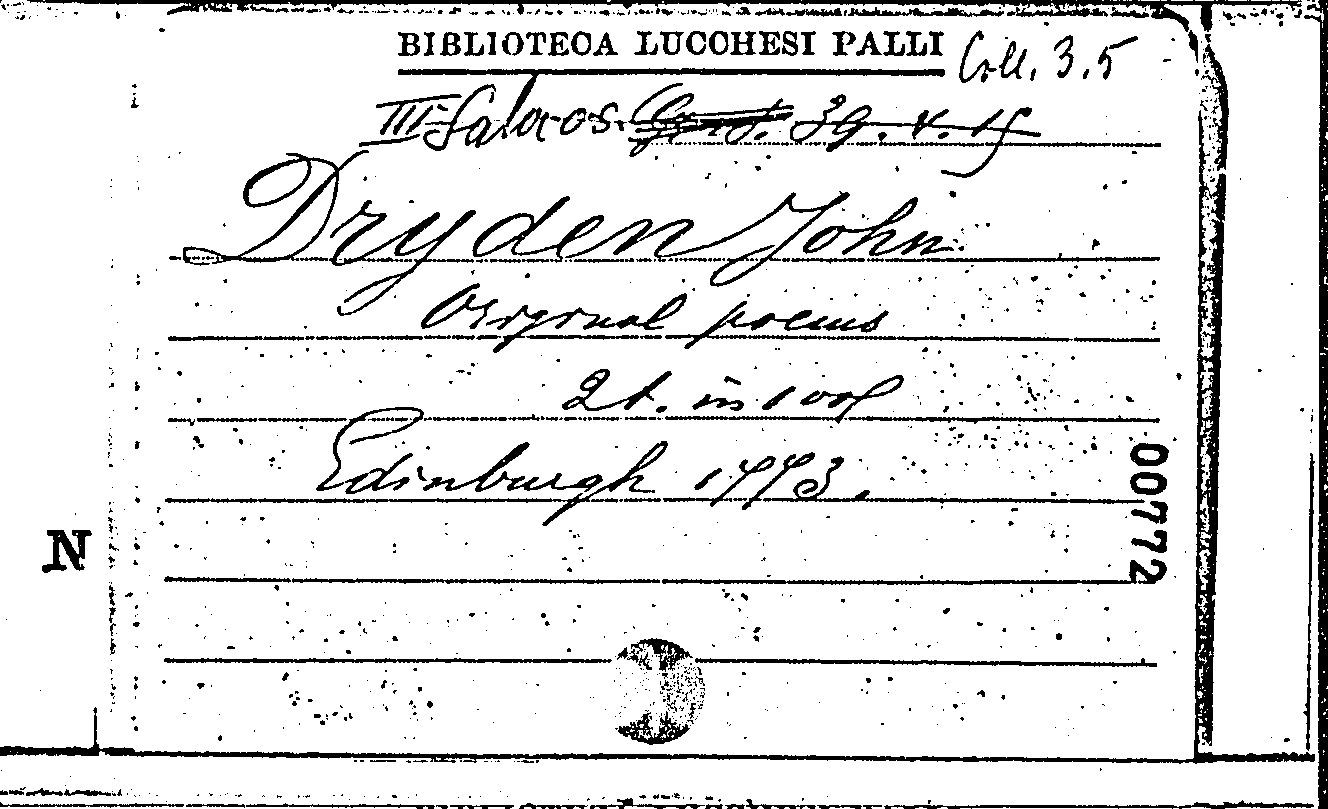 BIBLIOTECA LUCCHESI PALLI Coll. 3.5
III Sala os. 39. V. 15
Dryden John
Original poems
2t. in 1 vol
Edinburgh 1773.
00772
N